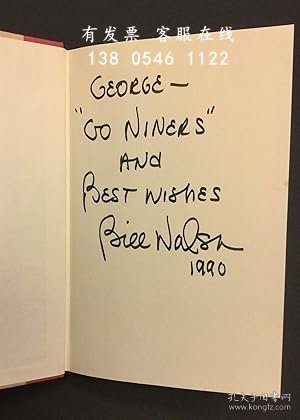 有发票 客服在线
138 0546 1122
GEORGE —
"GO NINERS"
AND
BEST WISHES
Bill Walsh
1990
孔夫子旧书网
www.kongfz.com